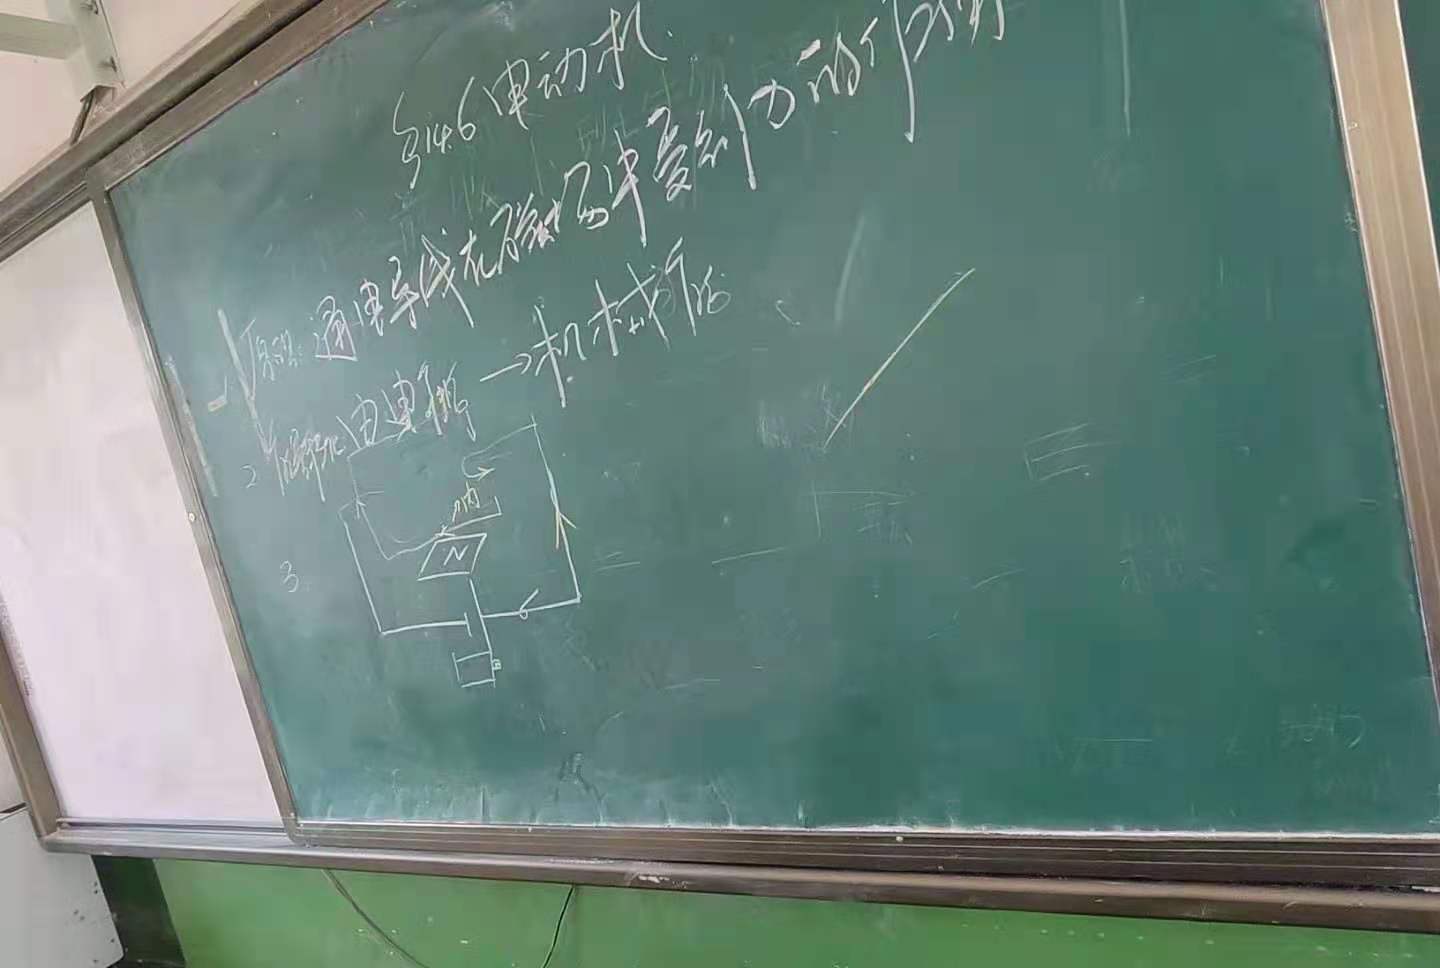 §14.6电动机
1原理:通电导线在磁场中受到力的作用
2能量转化:电能→机械能
3.
内
N